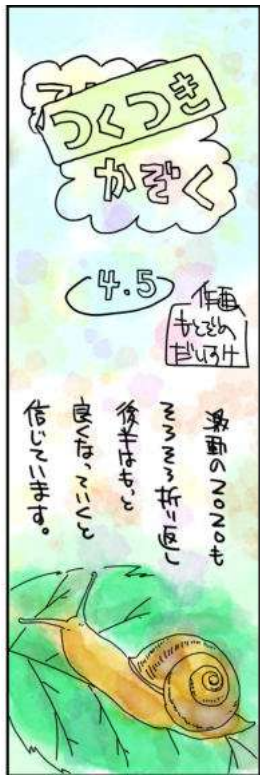 つくつき
かぞく
4.5
作画
もとぞの
だいすけ
激動の2020も
そろそろ折り返し
後半はもっと
良くなっていくと
信じています。